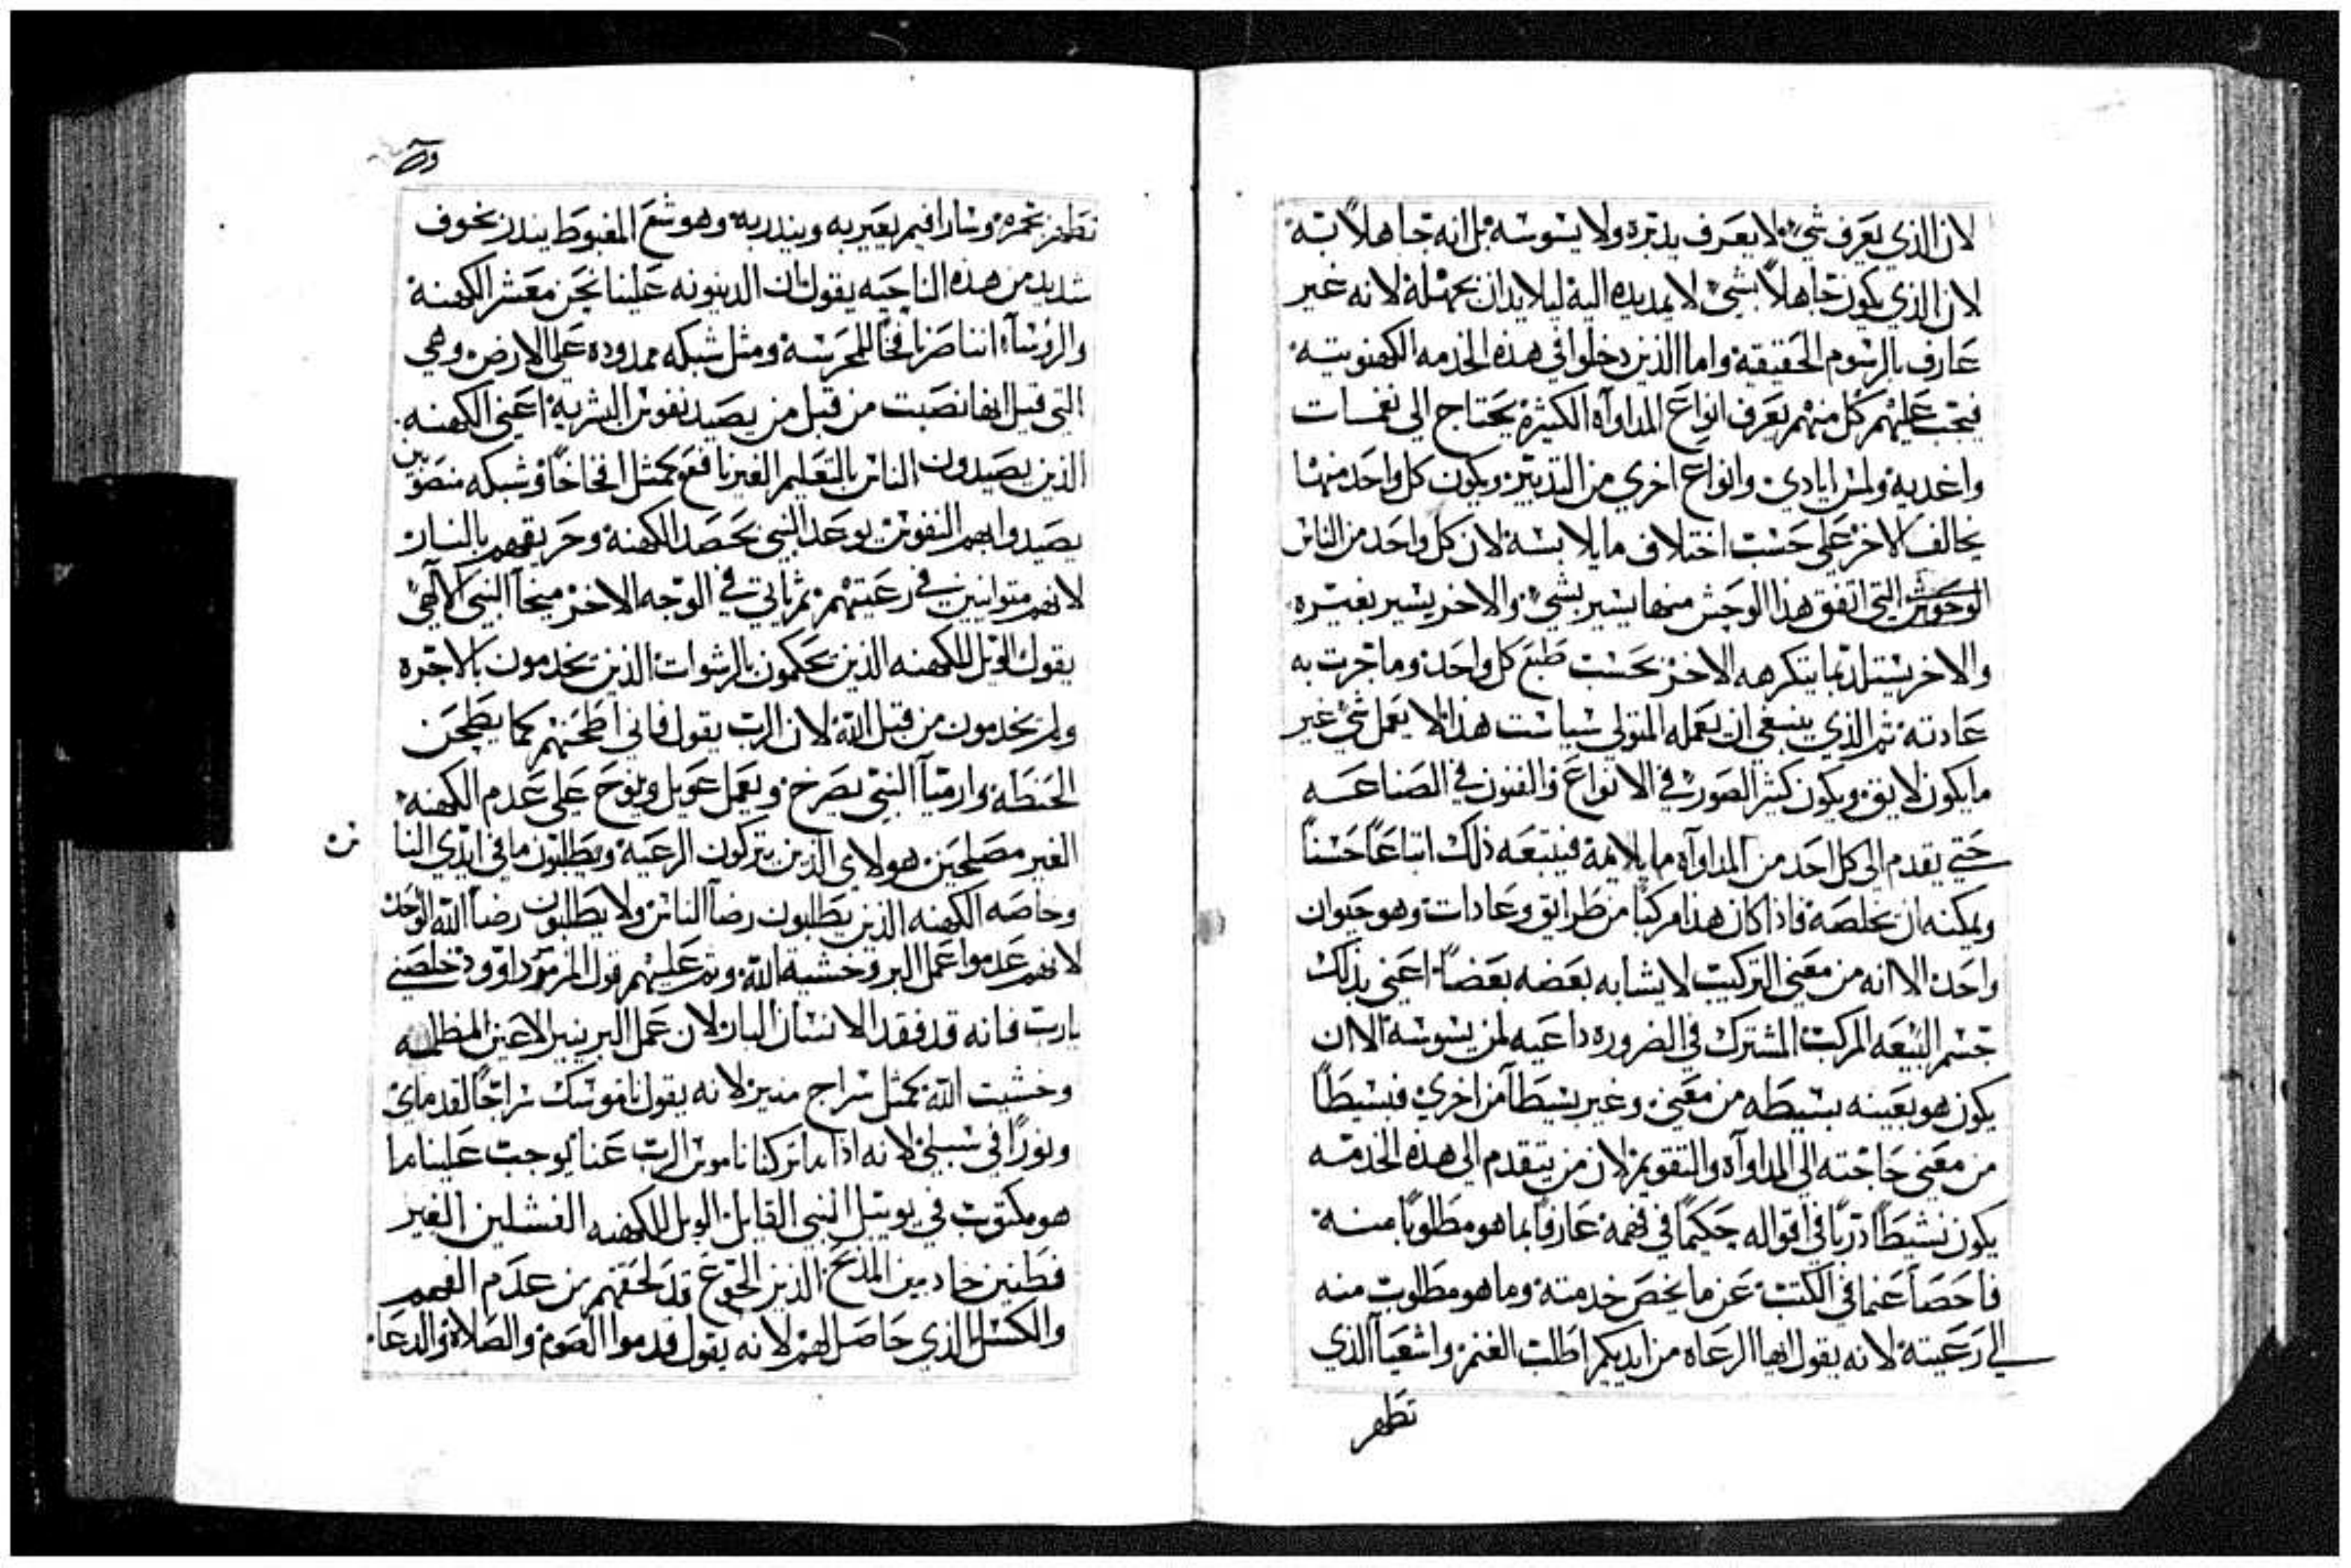 لان الذي يعرف شيء لا يعرف يدبره ولا يسوسه بل انه جاهلاً به
لان الذي يكون جاهلاً بشيء لا يمد يده اليه ليلا يدان بجهله لانه غير
عارف بالرسوم الحقيقية واما الذين دخلوا في هذه الخدمه الكهنوتيه
فيجب عليهم كل منهم يعرف انواع المداواه الكثيرة يحتاج الى نغمات
واغديه ولمس ايادي وانواع اخري من التدبير ويكون كل واحد منها
يخالف الاخر على حسب اختلاف ما يلابسه لان كل واحد من الناس
الوحوش التي اتفق هذا الوحش منها يسير بشيء والاخر يسير بغيره
والاخر يستلد بما يتكرهه الاخر بحسب طبع كل واحد وما جرت به
عادته ثم الذي ينبغي ان يعمله المتولي سياست هذا لا يعمل شي غير
ما يكون لايق ويكون كثير الصور في الانواع والفنون في الصناعه
حتي يقدم الى كل احد من المداواه ما يلايمه فيتبعه ذلك اتباعاً حسناً
ويمكنه ان يخلصه فاذا كان هذا مركباً من طرايق وعادات وهو حيوان
واحد الا انه من معني التركيب لا يشابه بعضه بعضاً اعني بذلك
جسم البيعه المركب المشترك في الضروره داعيه لمن يسوسه الا ان
يكون هو بعينه بسيطه من معني وغير بسيطاً من اخري فبسيطاً
من معني حاجته الى المداواه والتقويم لان من يتقدم الى هذه الخدمه
يكون نشيطاً درباً في اقواله حكيماً في فهمه عارفاً بما هو مطلوباً منه
فاحصاً عنما في الكتب عن ما يخص خدمته وما هو مطلوب منه
الي رعيته لانه يقول ايها الرعاه من ايديكم اطلب الغنم واشعيا الذي
تطهر
تطهر بجمره وسارافيم يعير به وينذر به وهو شمع المغبوط ينذر بخوف
شديد من هذه الناحيه يقول ان الدينونه علينا نحن معشر الكهنة
والروساء اننا صرنا فخاً للمحرسة ومثل شبكه ممدوده على الارض وهي
التي قيل انها نصبت من قبل من يصيد نفوس البشرية اعني الكهنه
الذين يصيدون الناس بالتعليم الغير نافع كمثل افخاخاً وشبكه منصوبين
يصيدوا بهم النفوس يوعد النبي بحصد الكهنة وحريقهم بالنار
لانهم متوانيين في رعيتهم ثم ياتي في الوجه الاخر ميخا النبي الالهي
يقول الويل للكهنه الذين يحكمون بالرشوات الذين يخدمون بالاجره
ولم يخدمون من قبل الله لان الرب يقول فاني اطحنهم كما يطحن
الحنطه وارميا النبي يصرخ ويعمل عويل وينوح على عدم الكهنه
الغير مصلحين هولاي الذين يتركون الرعيه ويطلبون ما في ايدي الناس
وخاصه الكهنه الذين يطلبون رضا الناس ولا يطلبون رضا الله الوحد
لانهم عدموا عمل البر وخشية الله وتم عليهم قول المرمور داوود خلصني
يارب فانه قد فقد الانسان البار لان عمل البر ينير الاعين المظلمه
وخشيت الله كمثل سراج منير لانه يقول ناموسك سراجاً لقدماي
ونوراً في سبيلي لانه اذا ما تركنا ناموس الرب عنا يوجب علينا ما
هو مكتوب في يوييل النبي القايل الويل للكهنه الفشلين الغير
فطنين خادمين المذبح الذين الجوع قد لحقهم من عدم الفهم
والكسل الذي حاصل لهم لانه يقول قدموا الصوم والصلاة والدعا